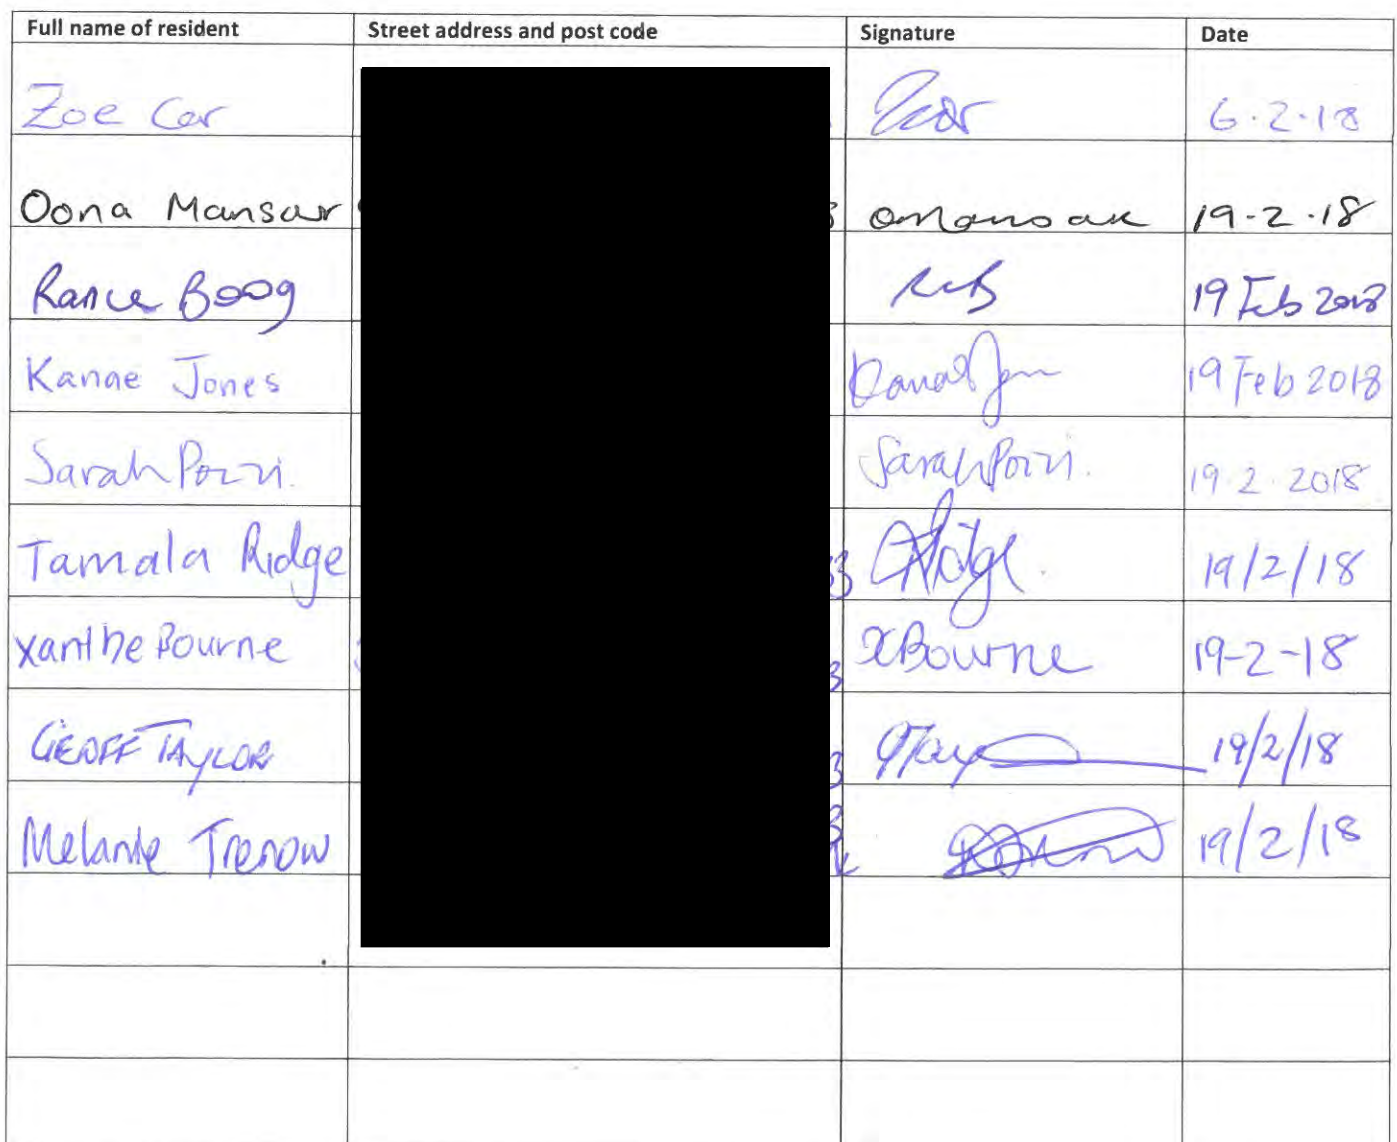 Full name of resident Street address and post code Signature Date
Zoe Car 6.2.18
Oona Mansar 19-2-18
Rance Boog 19 Feb 2018
Kanae Jones 19 Feb 2018
Sarah Pozzi. Sarah Pozzi. 19.2.2018
Tamala Ridge 19/2/18
Xanthe Bourne XBourne 19-2-18
GEOFF TAYLOR 19/2/18
Melanie Trenow 19/2/18